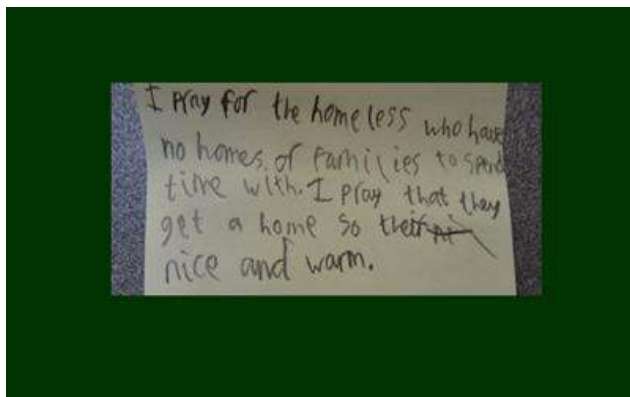 I pray for the homeless who have
no homes or families to spend
time with. I pray that they
get a home so their
nice and warm.